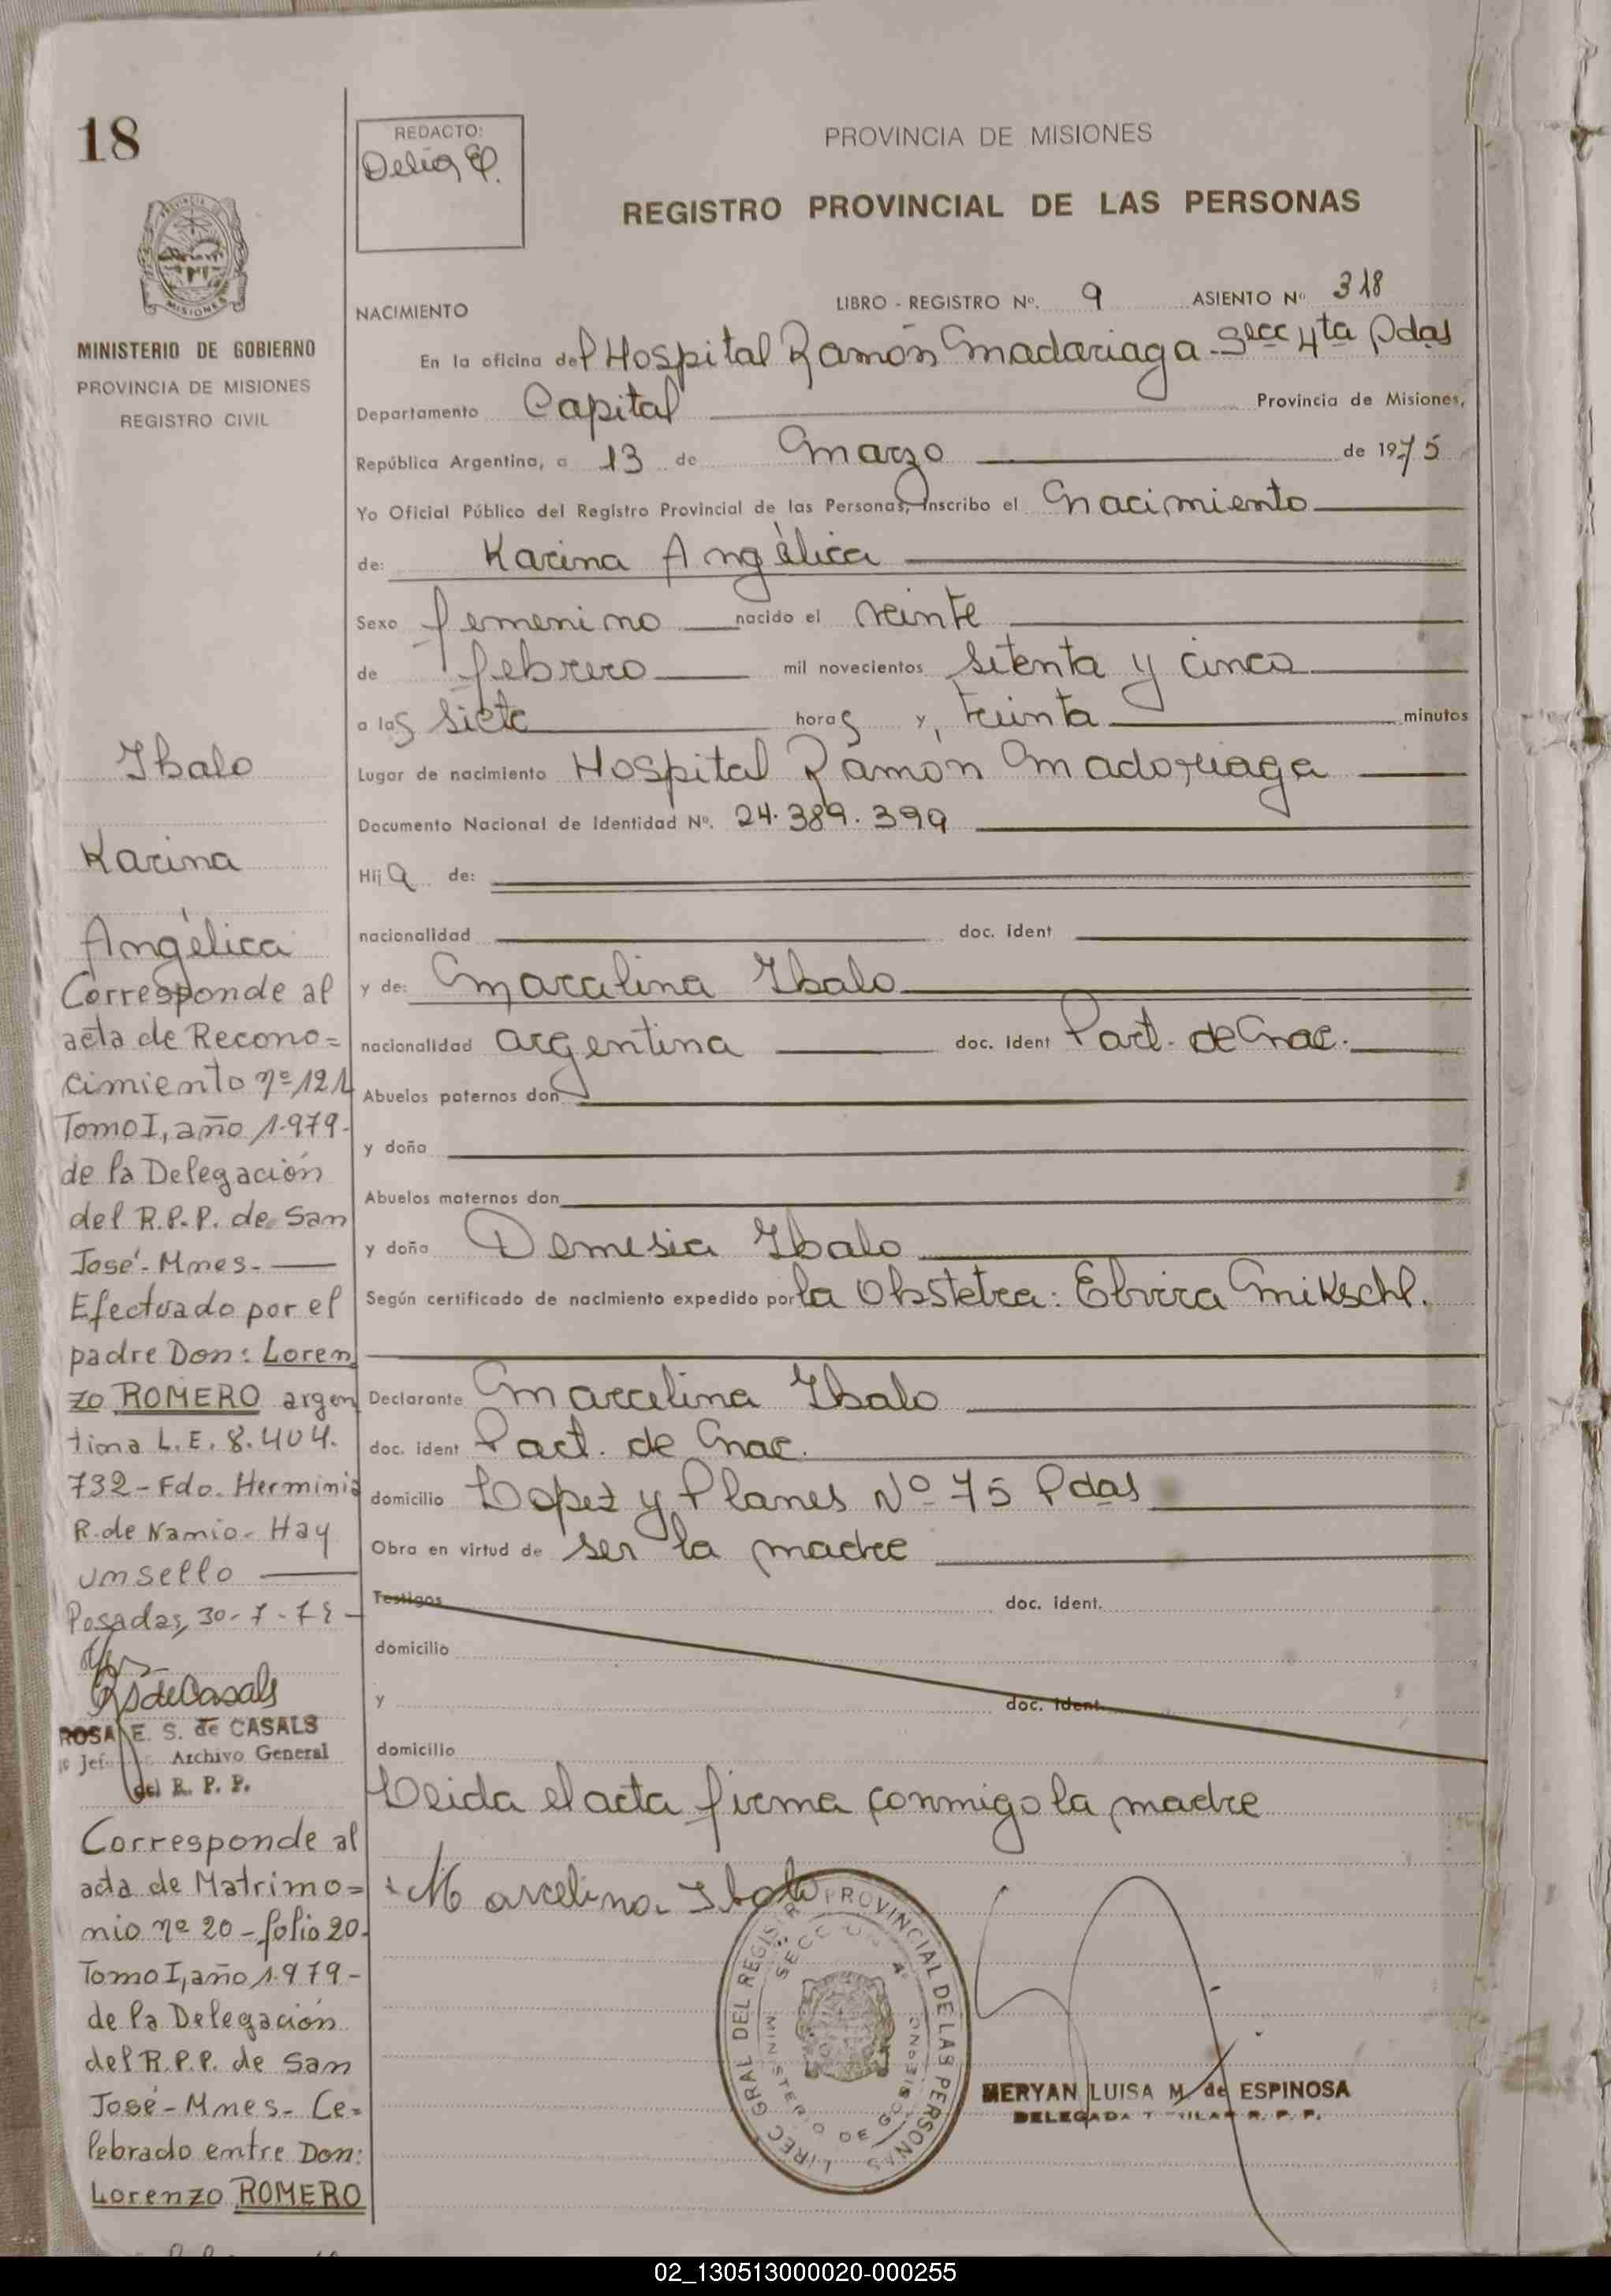 18
REDACTO:
Delia E.
PROVINCIA DE MISIONES
REGISTRO PROVINCIAL DE LAS PERSONAS
MISIONES
MINISTERIO DE GOBIERNO
PROVINCIA DE MISIONES
REGISTRO CIVIL
NACIMIENTO LIBRO - REGISTRO Nº. 9 ASIENTO Nº 318
En la oficina del Hospital Ramón Madariaga - Secc 4ta Pdas
Departamento Capital Provincia de Misiones,
República Argentina, a 13 de Marzo de 1975
Yo Oficial Público del Registro Provincial de las Personas, inscribo el Nacimiento
de: Karina Angélica
Sexo femenino nacido el veinte
de febrero mil novecientos setenta y cinco
a las siete horas y, treinta minutos
Lugar de nacimiento Hospital Ramón Madariaga
Documento Nacional de Identidad Nº. 24.389.399
Hija de:
nacionalidad doc. ident
y de: Marcelina Ibalo
nacionalidad argentina doc. ident Part. de Nac.
Abuelos paternos don
y doña
Abuelos maternos don
y doña Demesia Ibalo
Según certificado de nacimiento expedido por la Obstetra: Elvira Mikschl.
Declarante Marcelina Ibalo
doc. ident Part. de Nac.
domicilio Lopez y Planes Nº 75 Pdas
Obra en virtud de ser la madre
Testigos doc. ident.
domicilio
y doc. ident.
domicilio
Leida el acta firma conmigo la madre
Marcelina Ibalo
DIREC GRAL DEL REGISTRO PROVINCIAL DE LAS PERSONAS
SECCION 4ª
MINISTERIO DE GOBIERNO
MERYAN LUISA M. de ESPINOSA
DELEGADA TITULAR R. P. P.
Ibalo
Karina
Angélica
Corresponde al
acta de Recono=
cimiento nº 121
Tomo I, año 1.979-
de la Delegación
del R.P.P. de San
José - Mnes-
Efectuado por el
padre Don: Loren
zo ROMERO argen
tino L.E. 8.404.
732 - Fdo. Herminia
R. de Namio - Hay
un sello
Posadas, 30-7-
RS de Casals
ROSA E. S. de CASALS
Jef Archivo General
del R. P. P.
Corresponde al
acta de Matrimo=
nio nº 20 - folio 20-
Tomo I, año 1.979-
de la Delegación
del R.P.P. de San
José - Mnes- Ce=
lebrado entre Don:
Lorenzo ROMERO
02_130513000020-000255